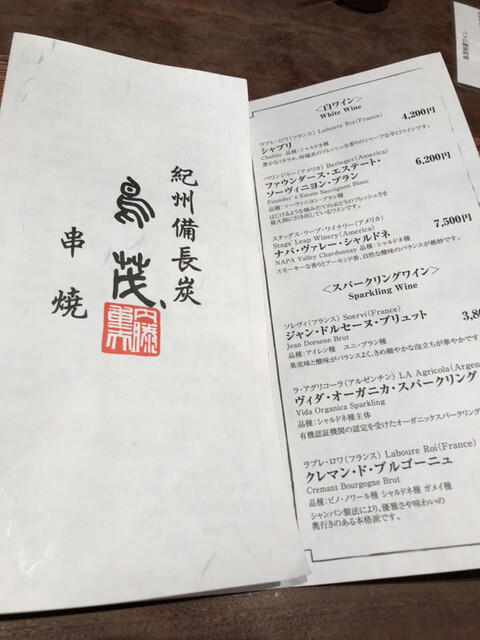 紀州備長炭
鳥茂
串焼
<白ワイン>
White Wine
ラブレ・ロワ(フランス) Laboure Roi(France)
シャブリ 4,200円
Chablis 品種:シャルドネ種
豊かなミネラル、柑橘系のフレッシュな香りのシャープな辛口ワインです。
ベリンジャー(アメリカ) Beringer(America)
ファウンダース・エステート・ 6,200円
ソーヴィニヨン・ブラン
Founder's Estate Sauvignon Blanc
品種:ソーヴィニヨン・ブラン種
はじけるような摘みたてのぶどうのフレッシュさを
最大限に引き出しているワインです。
スタッグス・リープ・ワイナリー(アメリカ)
Stags' Leap Winery(America)
ナパ・ヴァレー・シャルドネ 7,500円
NAPA Valley Chardonnay 品種:シャルドネ種
スモーキーな香りとアーモンド香、自然な酸味のバランスが絶妙です。
<スパークリングワイン>
Sparkling Wine
ソレヴィ(フランス) Soervi(France)
ジャン・ドルセーヌ・ブリュット 3,8
Jean Dorsene Brut
品種:アイレン種 ユニ・ブラン種
果実味と酸味がバランスよく、きめ細やかな泡立ちが華やかです
ラ・アグリコーラ(アルゼンチン) LA Agricola(Argen
ヴィダ・オーガニカ・スパークリング
Vida Organica Sparkling
品種:シャルドネ種主体
有機認証機関の認定を受けたオーガニックスパークリング
ラブレ・ロワ(フランス) Laboure Roi(France)
クレマン・ド・ブルゴーニュ
Cremant Bourgogne Brut
品種:ピノ・ノワール種 シャルドネ種 ガメイ種
シャンパン製法により、優雅さや味わいの
奥行きのある本格派です。